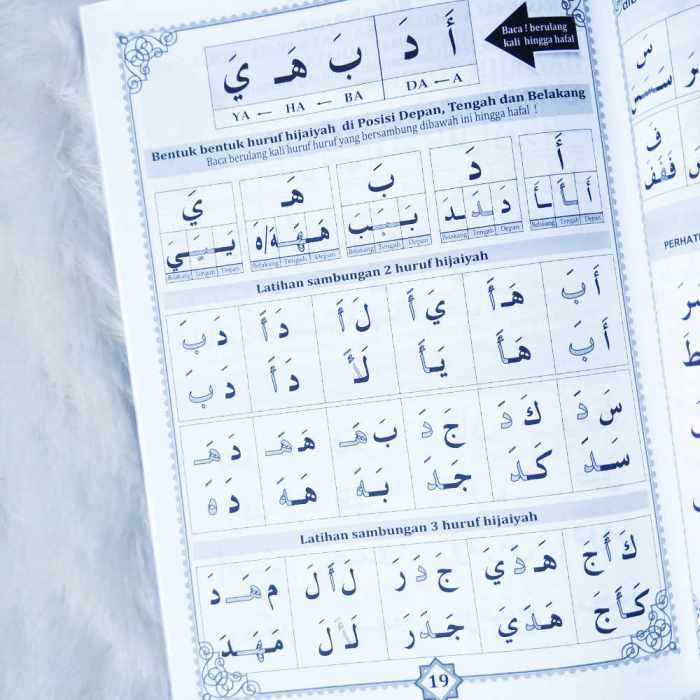 Baca ! berulang
kali hingga hafal
أَ دَ بَ هَـ يَ
YA ← HA ← BA DA ← A
Bentuk bentuk huruf hijaiyah di Posisi Depan, Tengah dan Belakang
Baca berulang kali huruf huruf yang bersambung dibawah ini hingga hafal !
أَ دَ بَ هَـ يَ
أَ ـأَ ـأَ دَ ـدَ ـدَ بَـ ـبَـ ـبَ هَـ ـهَـ ـهَ/هَ يَـ ـيَـ ـيَ
Belakang Tengah Depan Belakang Tengah Depan Belakang Tengah Depan Belakang Tengah Depan Belakang Tengah Depan
Latihan sambungan 2 huruf hijaiyah
أَ بَ هَـ أَ يَ أَ لَ أَ دَ أَ دَ بَ
أَ بَ هَأَ يَأَ لَأَ دَ أَ دَ بَ
سَ دَ كَ دَ جَ دَ بَ هَـ هَـ هَـ دَ هَـ
سَدَ كَدَ جَدَ بَهَ هَهَ دَ هَ
Latihan sambungan 3 huruf hijaiyah
كَ أَ جَ هَـ دَ يَ جَ دَ رَ لَ أَ لَ مَ هَـ دَ
كَأَجَ هَدَيَ جَدَرَ لَأَلَ مَهَدَ
19
PERHATI